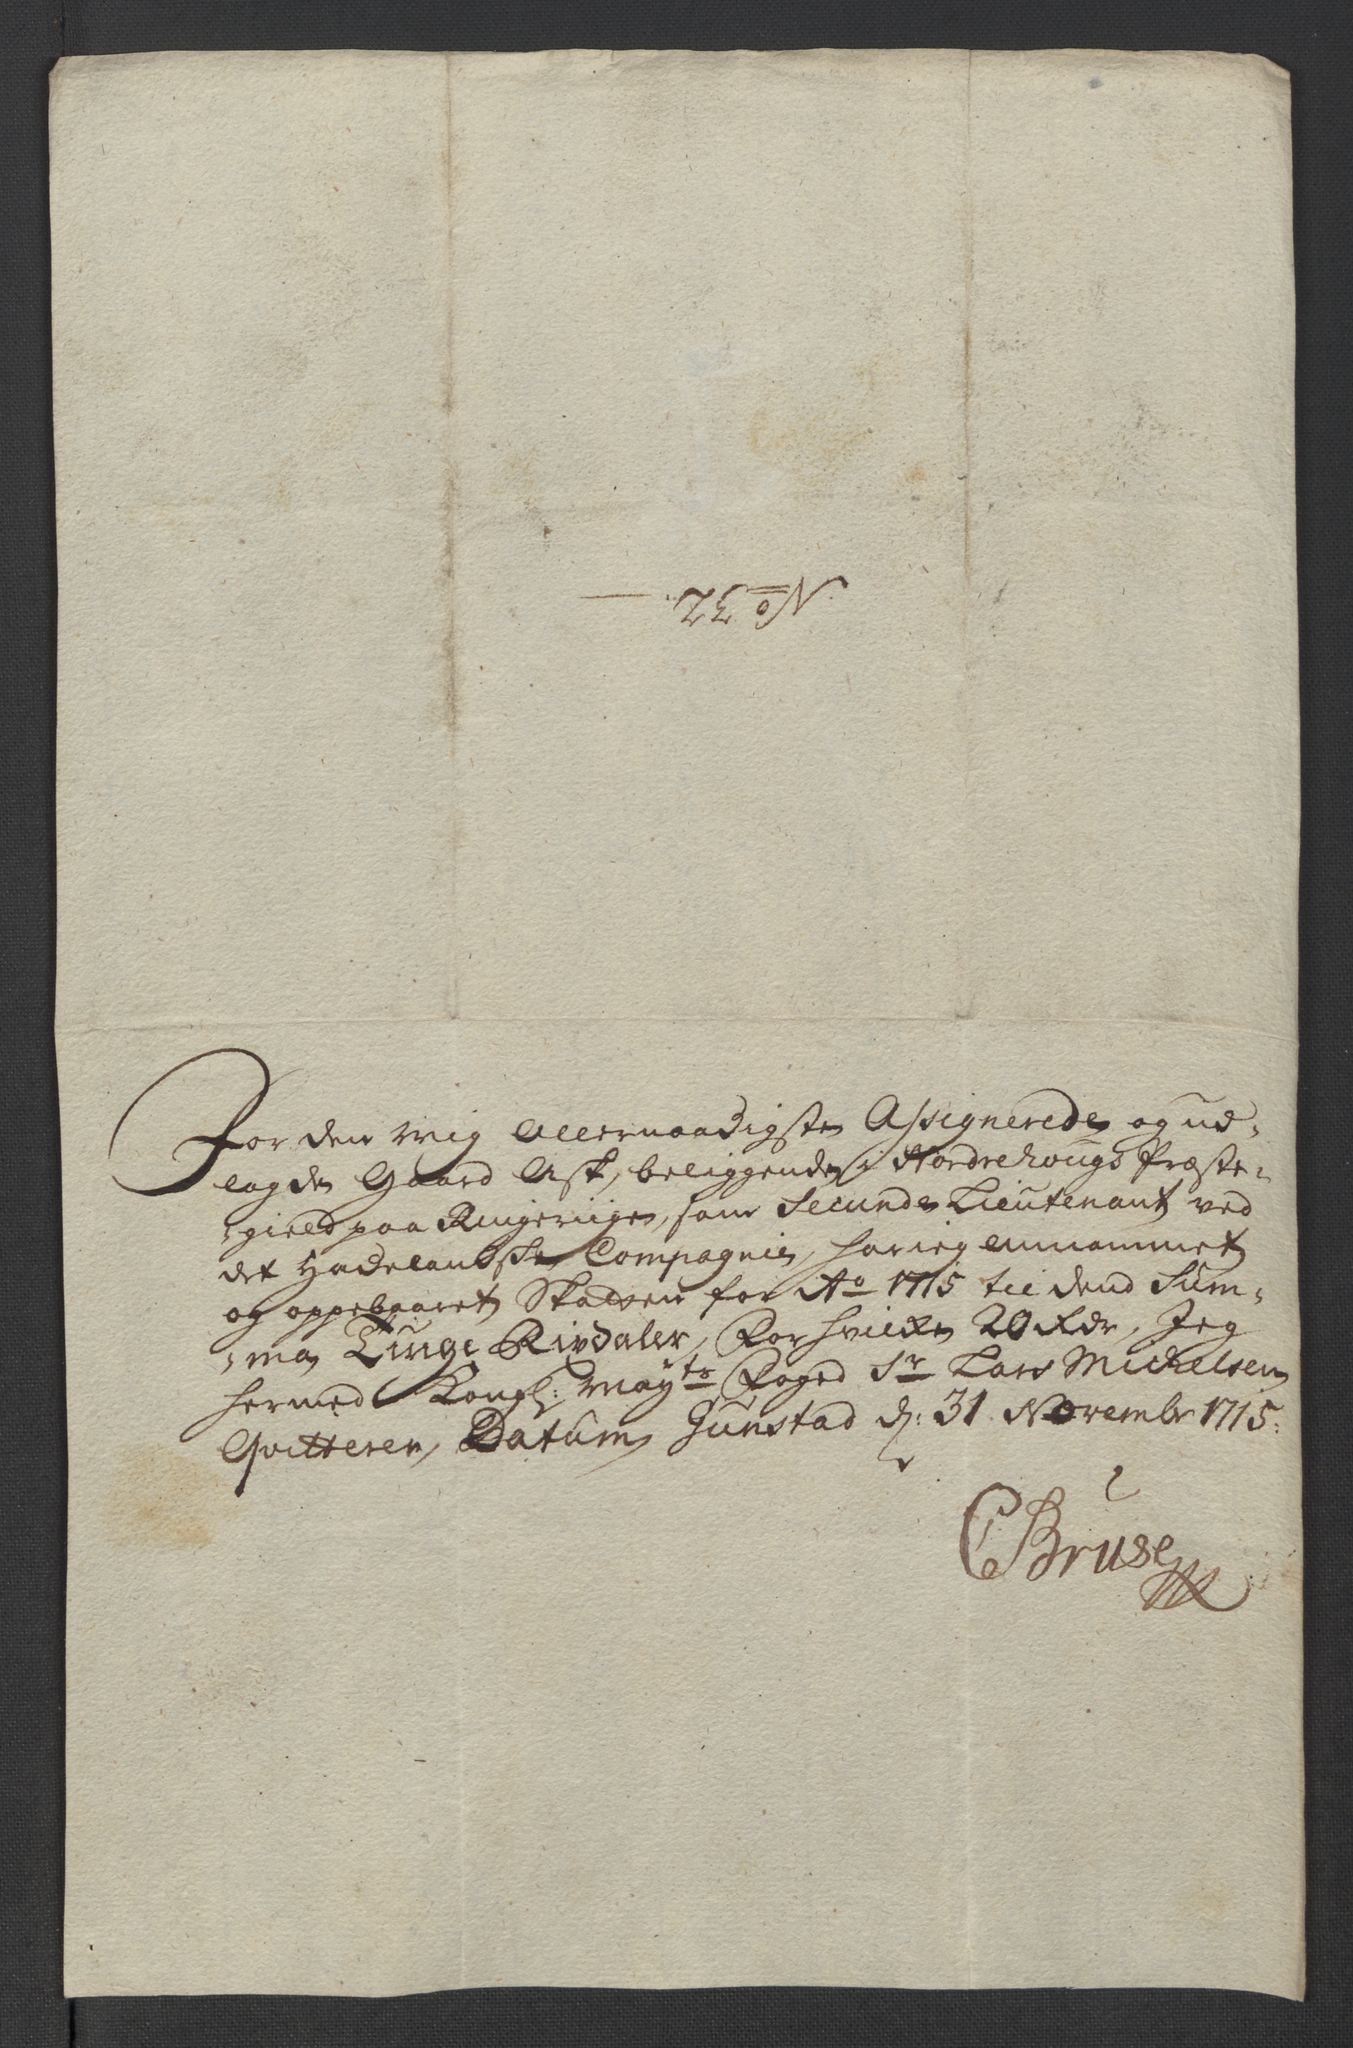 No 32.
For den mig allernaadigste Assignerede og ud-
lagde Gaard Ask, beliggende i Nordrehougs Præste-
-gield paa Ringeriige, som Secunde Lieutenant ved
det Hadelandske Compagnie, har ieg annammet
og oppebaaret Skatten for Ao 1715 til dend Sum-
-ma Tiuge Rixdaler, For hvilke 20 Rdr, Jeg
hermed Kongl: Mayts Foged Sr Lars Michelsen
Qvitterer, Datum Gunstad d: 31 Novembr 1715:
CBruse